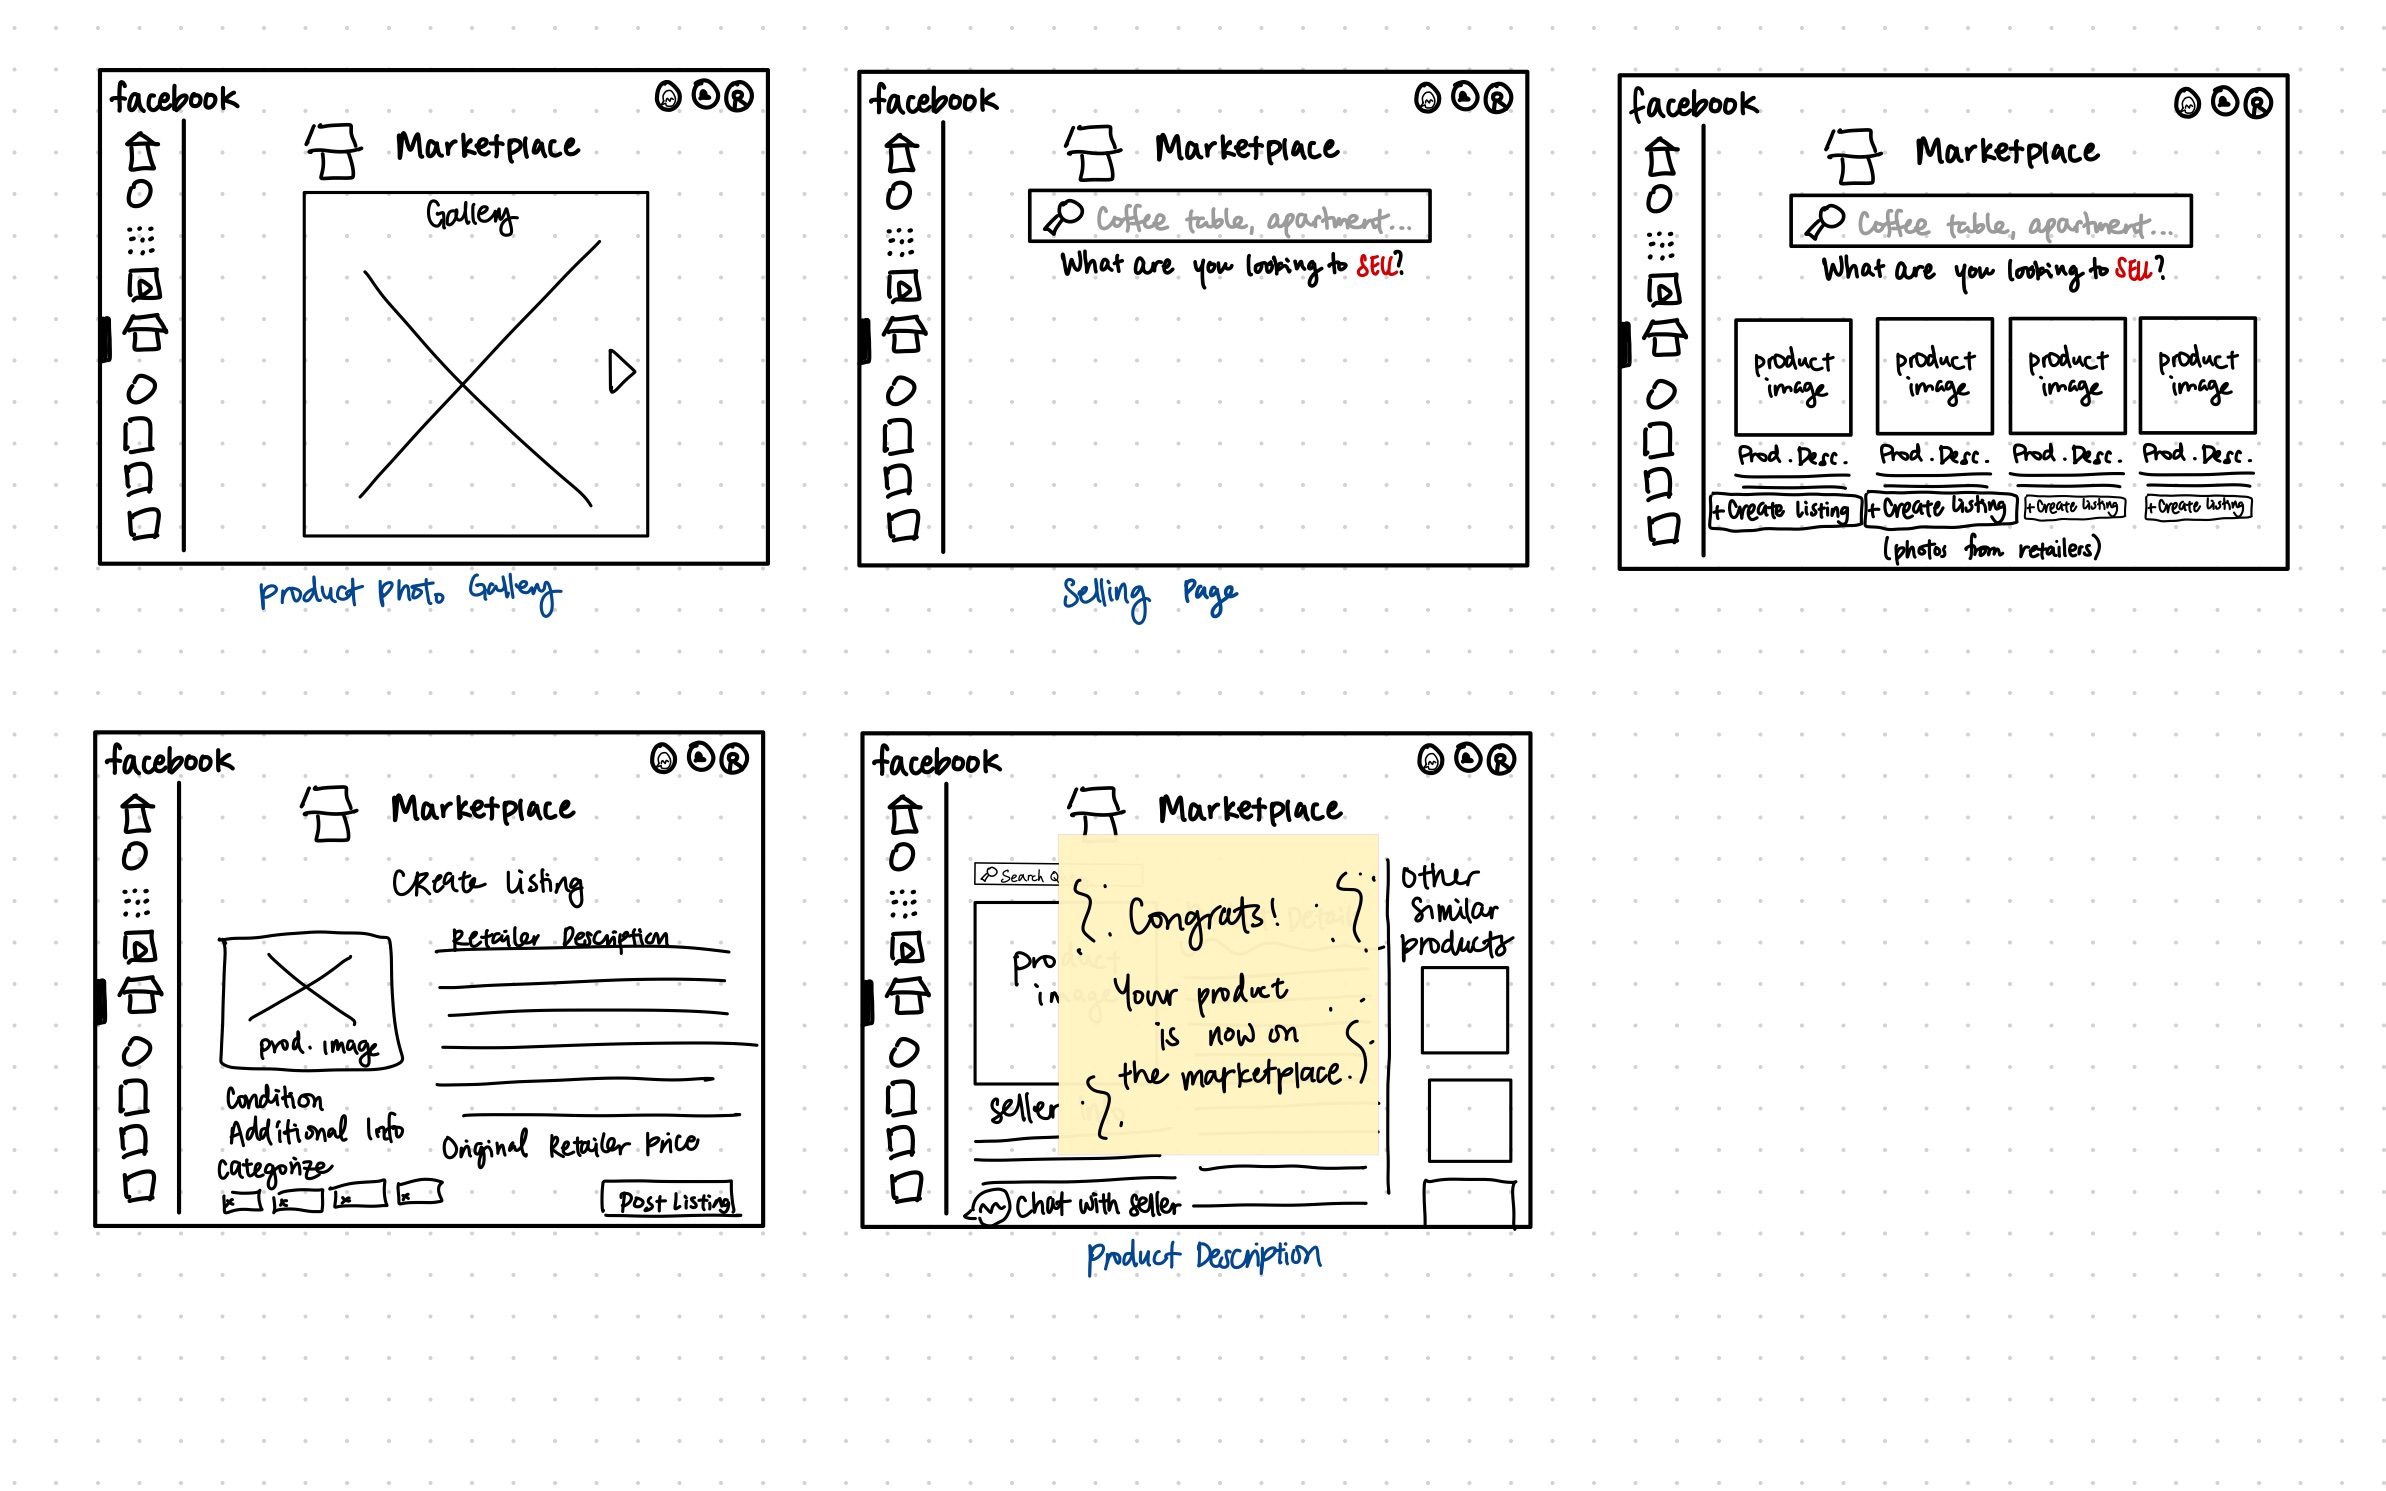 facebook
Marketplace
Gallery
Product Photo Gallery
facebook
Marketplace
Coffee table, apartment...
What are you looking to SELL?
Selling Page
facebook
R
Marketplace
Coffee table, apartment...
What are you looking to SELL?
product image
product image
product image
product image
Prod. Desc.
Prod. Desc.
Prod. Desc.
Prod. Desc.
+Create Listing
+Create Listing
+Create Listing
+Create Listing
(photos from retailers)
facebook
R
Marketplace
Create Listing
Retailer Description
prod. image
Condition
Additional Info
Categorize
x
x
x
x
Original Retailer Price
Post Listing
facebook
R
Marketplace
Search
Congrats!
Your product
is now on
the marketplace.
product
image
seller
Chat with seller
other
similar
products
Product Description